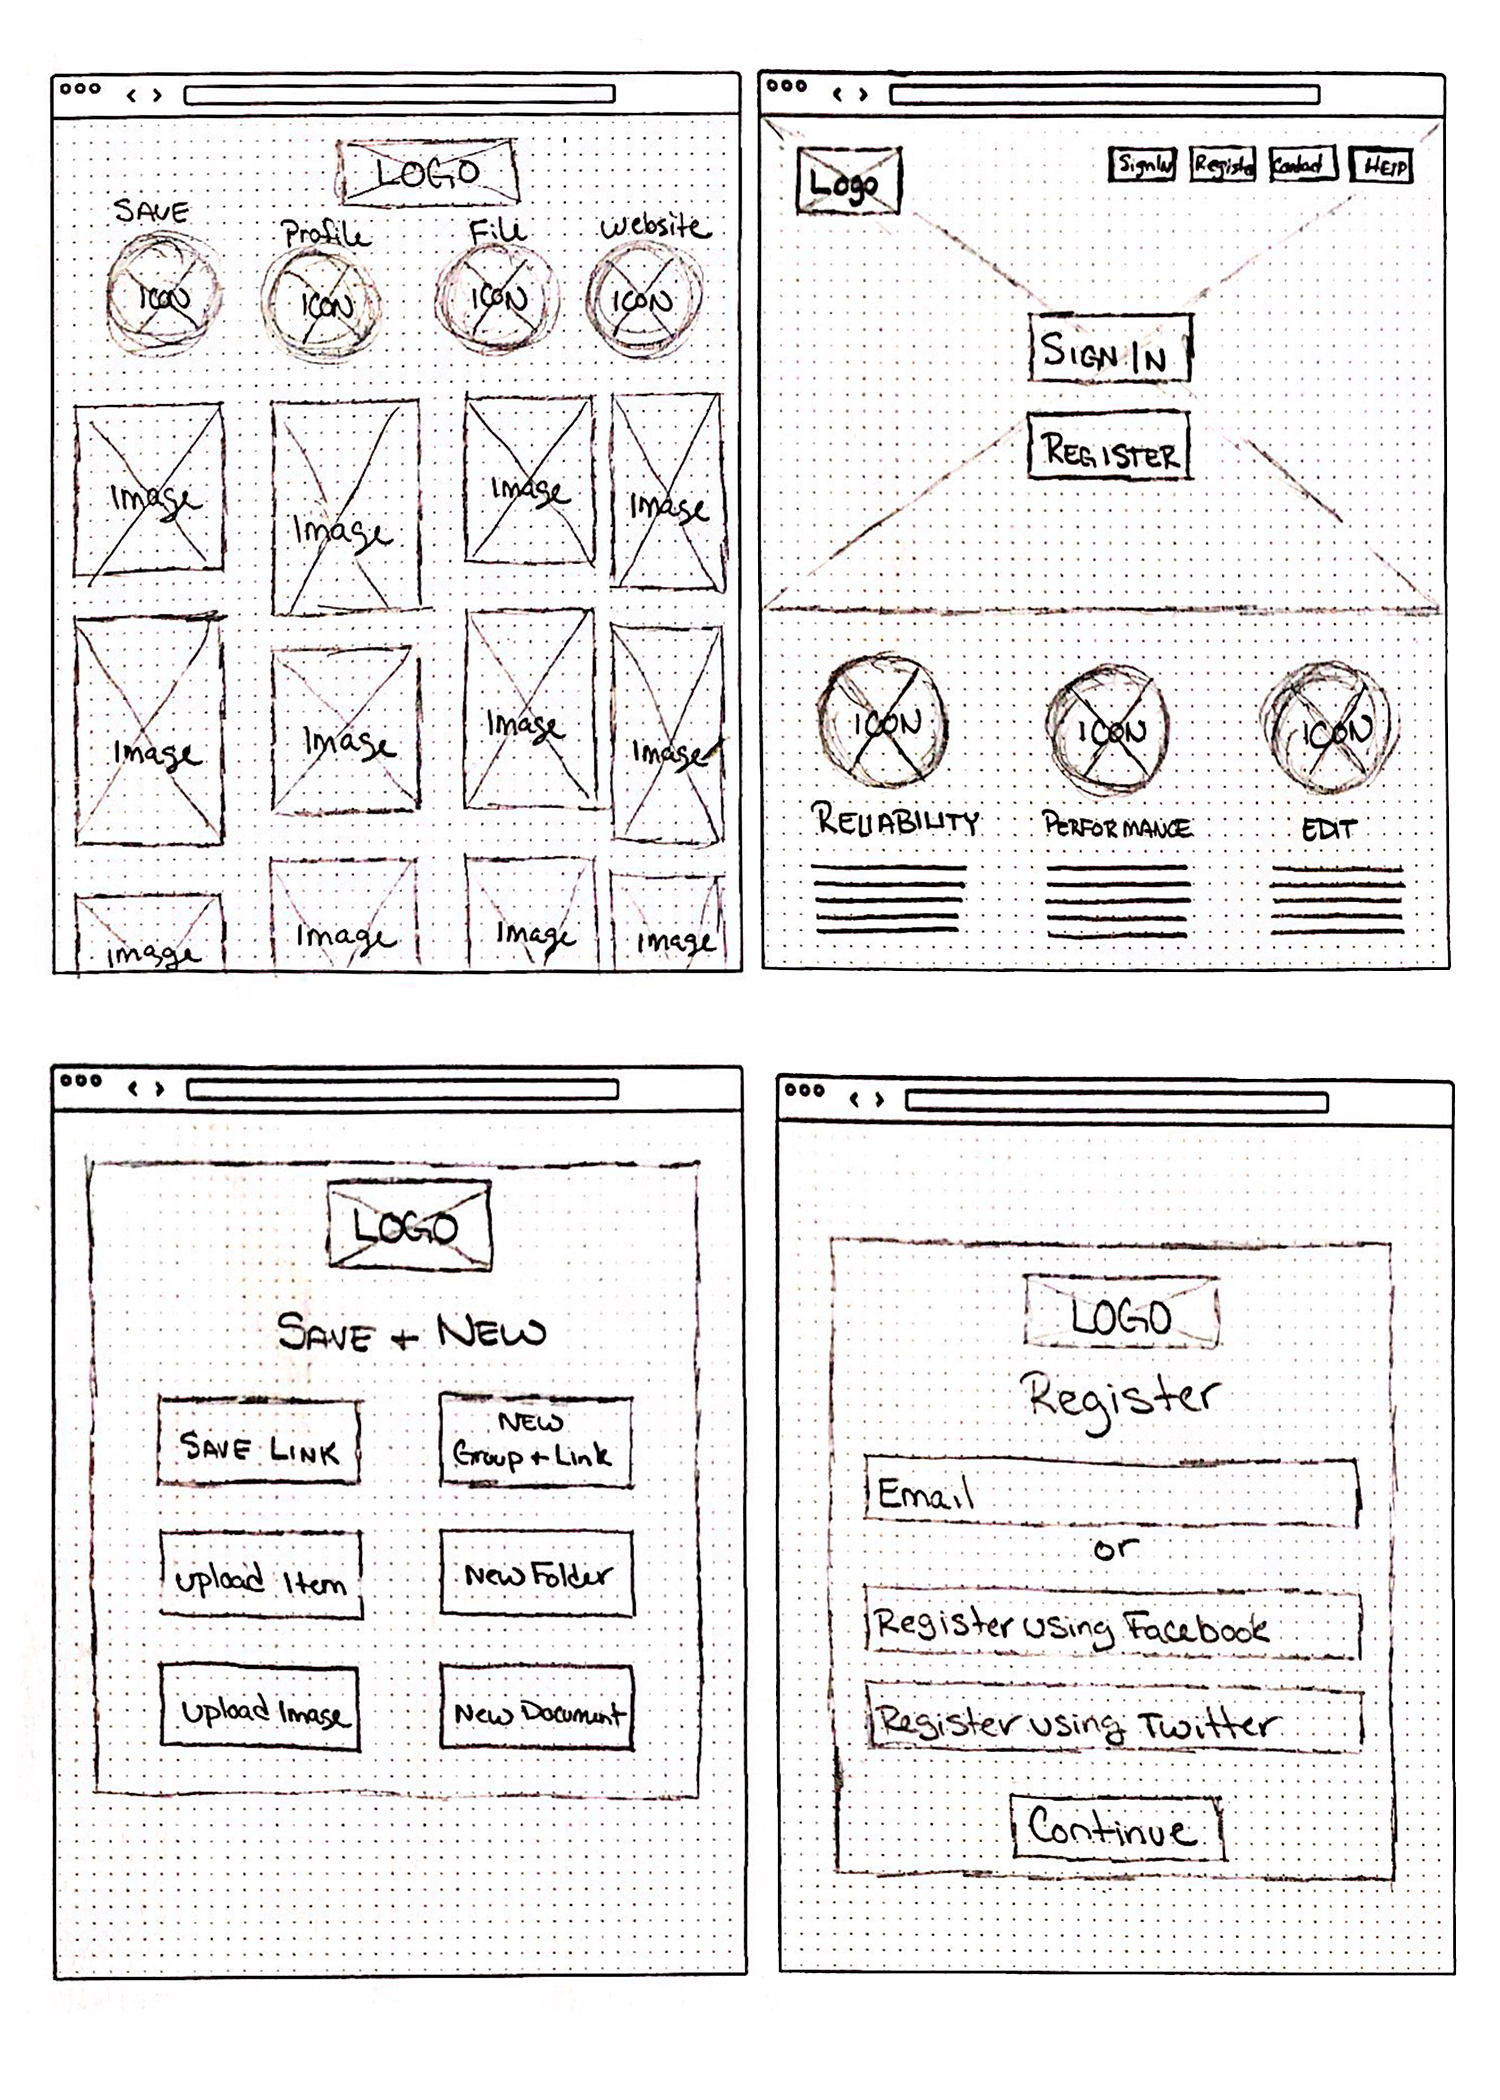 LOGO
SAVE
Profile
File
Website
ICON
ICON
ICON
ICON
Image
Image
Image
Image
Image
Image
Image
Image
Image
Image
Image
Image
Logo
Sign IN
Register
Contact
HElP
SIGN IN
REGISTER
ICON
ICON
ICON
RELIABILITY
PERFORMANCE
EDIT
LOGO
SAVE + NEW
SAVE LINK
NEW
Group + Link
Upload Item
New Folder
Upload Image
New Document
LOGO
Register
Email
or
Register using Facebook
Register using Twitter
Continue